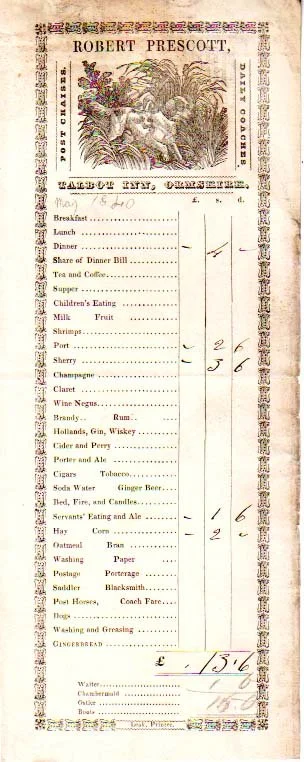 ROBERT PRESCOTT,
POST CHAISES.
DAILY COACHES
TALBOT INN, ORMSKIRK.
May 1840 £. s. d.
Breakfast
Lunch
Dinner - 4 -
Share of Dinner Bill
Tea and Coffee
Supper
Children's Eating
Milk Fruit
Shrimps
Port - 2 6
Sherry - 3 6
Champagne
Claret
Wine Negus
Brandy.. Rum..
Hollands, Gin, Wiskey
Cider and Perry
Porter and Ale
Cigars Tobacco
Soda Water Ginger Beer
Bed, Fire, and Candles
Servants' Eating and Ale - 1 6
Hay Corn - 2 -
Oatmeal Bran
Washing Paper
Postage Porterage
Saddler Blacksmith
Post Horses, Coach Fare
Dogs
Washing and Greasing
GINGERBREAD
£ . 13 . 6
Waiter 1 6
Chambermaid
Ostler 15.0
Boots
Leak, Printer.